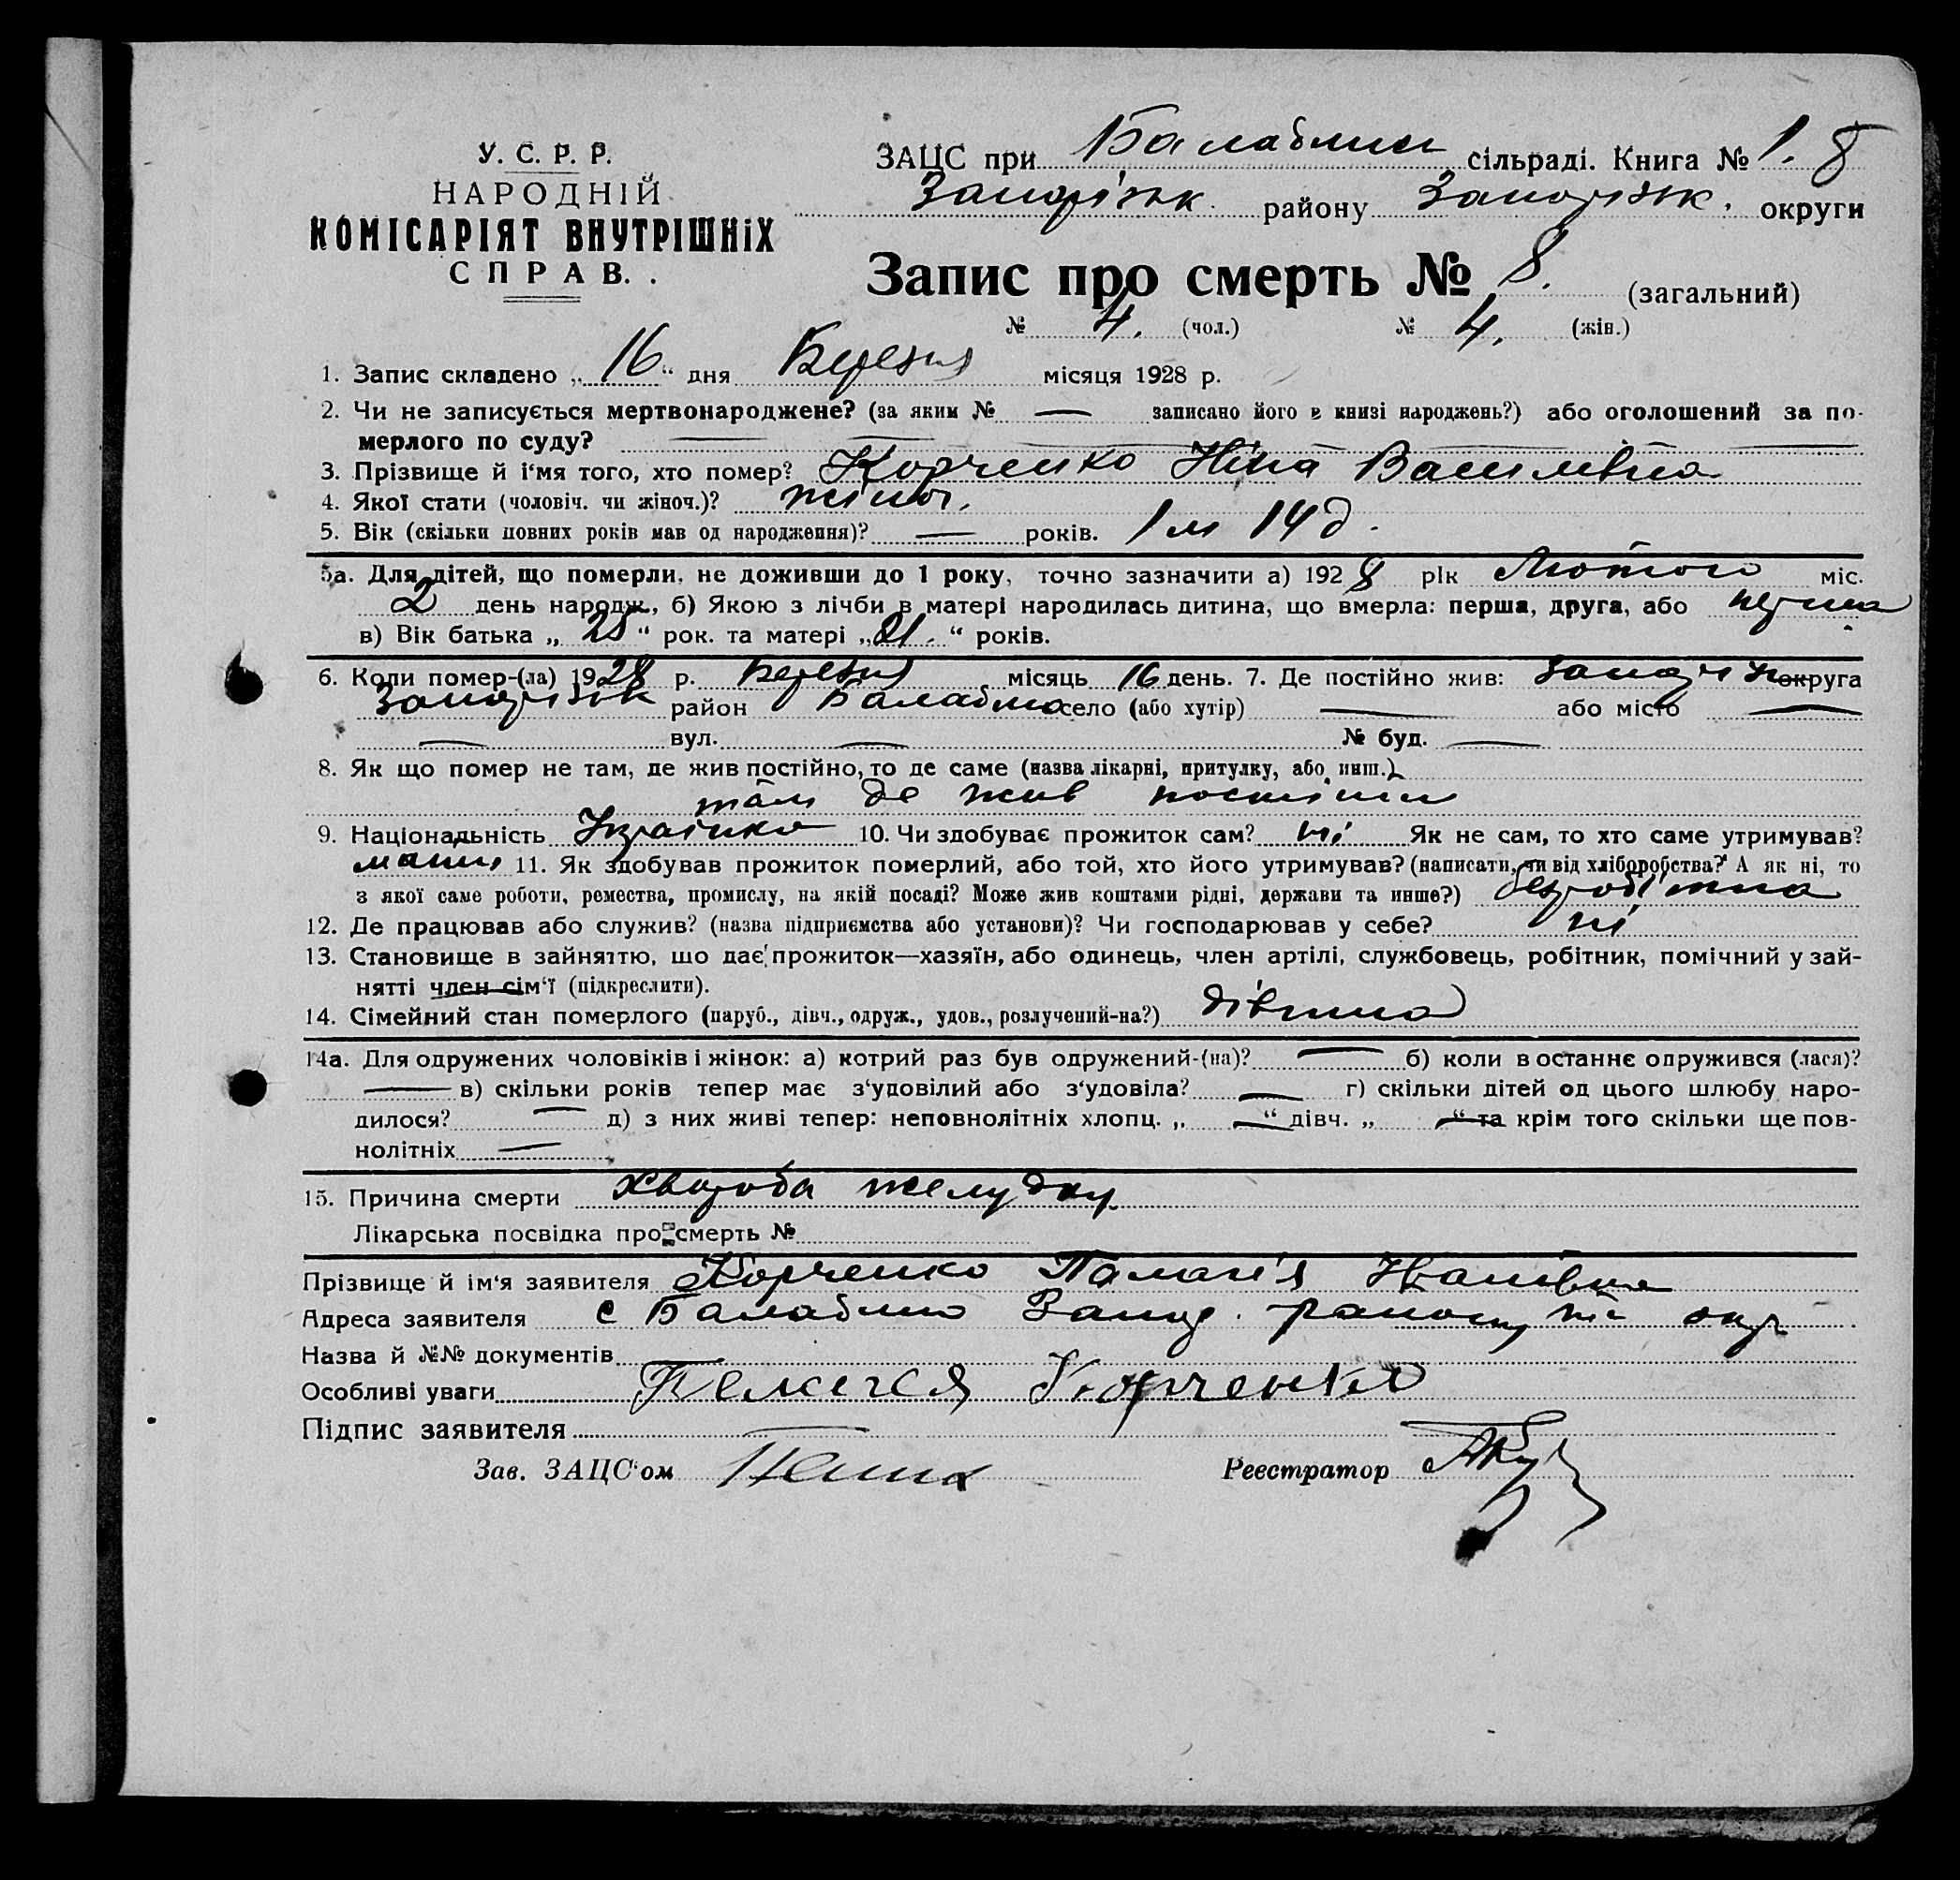 У. С. Р. Р.
НАРОДНІЙ
КОМІСАРІЯТ ВНУТРІШНІХ
СПРАВ.
ЗАЦС при Балабин сільраді. Книга № 1. 8
Запоріжк. району Запоріжк. округи
Запис про смерть № 8. (загальний)
№ 4. (чол.) № 4. (жін.)
1. Запис складено „ 16 “ дня Березня місяця 1928 р.
2. Чи не записується мертвонароджене? (за яким № — записано його в книзі народжень?) або оголошений за по-
мерлого по суду? —
3. Прізвище й ім'я того, хто помер? Корченко Ніна Василівна
4. Якої стати (чоловіч. чи жіноч.)? жіноч.
5. Вік (скільки повних років мав од народження)? — років. 1 м 14 д.
5а. Для дітей, що померли, не доживши до 1 року, точно зазначити а) 1928 рік Лютого міс.
2 день народж., б) Якою з лічби в матері народилась дитина, що вмерла: перша, друга, або перша
в) Вік батька „ 25 “ рок. та матері „ 21. “ років.
6. Коли помер-(ла) 1928 р. Березня місяць 16 день. 7. Де постійно жив: Запоріжк округа
Запоріжк район Балабино село (або хутір) — або місто —
— вул. — № буд. —
8. Як що помер не там, де жив постійно, то де саме (назва лікарні, притулку, або инш.)
там де жив постійно
9. Національність Українка 10. Чи здобуває прожиток сам? ні Як не сам, то хто саме утримував?
мати 11. Як здобував прожиток померлий, або той, хто його утримував? (написати, чи від хліборобства? А як ні, то
з якої саме роботи, ремества, промислу, на якій посаді? Може жив коштами рідні, держави та инше?) безробітна
12. Де працював або служив? (назва підприємства або установи)? Чи господарював у себе? ні
13. Становище в зайняттю, що дає прожиток—хазяїн, або одинець, член артілі, службовець, робітник, помічний у зай-
нятті член сім'ї (підкреслити).
14. Сімейний стан померлого (паруб., дівч., одруж., удов., розлучений-на?) дівчина
14а. Для одружених чоловіків і жінок: а) котрий раз був одружений-(на)? — б) коли в останнє одружився (лася)?
— в) скільки років тепер має з'удовілий або з'удовіла? — г) скільки дітей од цього шлюбу наро-
дилося? — д) з них живі тепер: неповнолітніх хлопц. „ — “ дівч. „ — “ та крім того скільки ще пов-
нолітніх —
15. Причина смерти Хвороба желудку
Лікарська посвідка про смерть №
Прізвище й ім'я заявителя Корченко Палагія Іванівна
Адреса заявителя с Балабино Запор. району тіє окр
Назва й №№ документів
Особливі уваги Пелагея Корченко
Підпис заявителя
Зав. ЗАЦС'ом
Реєстратор